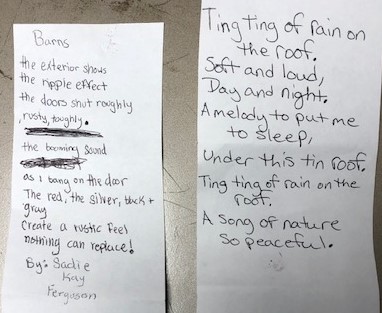 Barns
the exterior shows
the ripple effect
the doors shut roughly
, rusty, toughly.
the booming sound
as i bang on the door
The red, the silver, black +
gray
Create a rustic feel
nothing can replace!
By: Sadie
Kay
Ferguson
Ting ting of rain on
the roof.
Soft and loud,
Day and night.
A melody to put me
to sleep,
Under this tin roof.
Ting ting of rain on the
roof.
A song of nature
so peaceful.